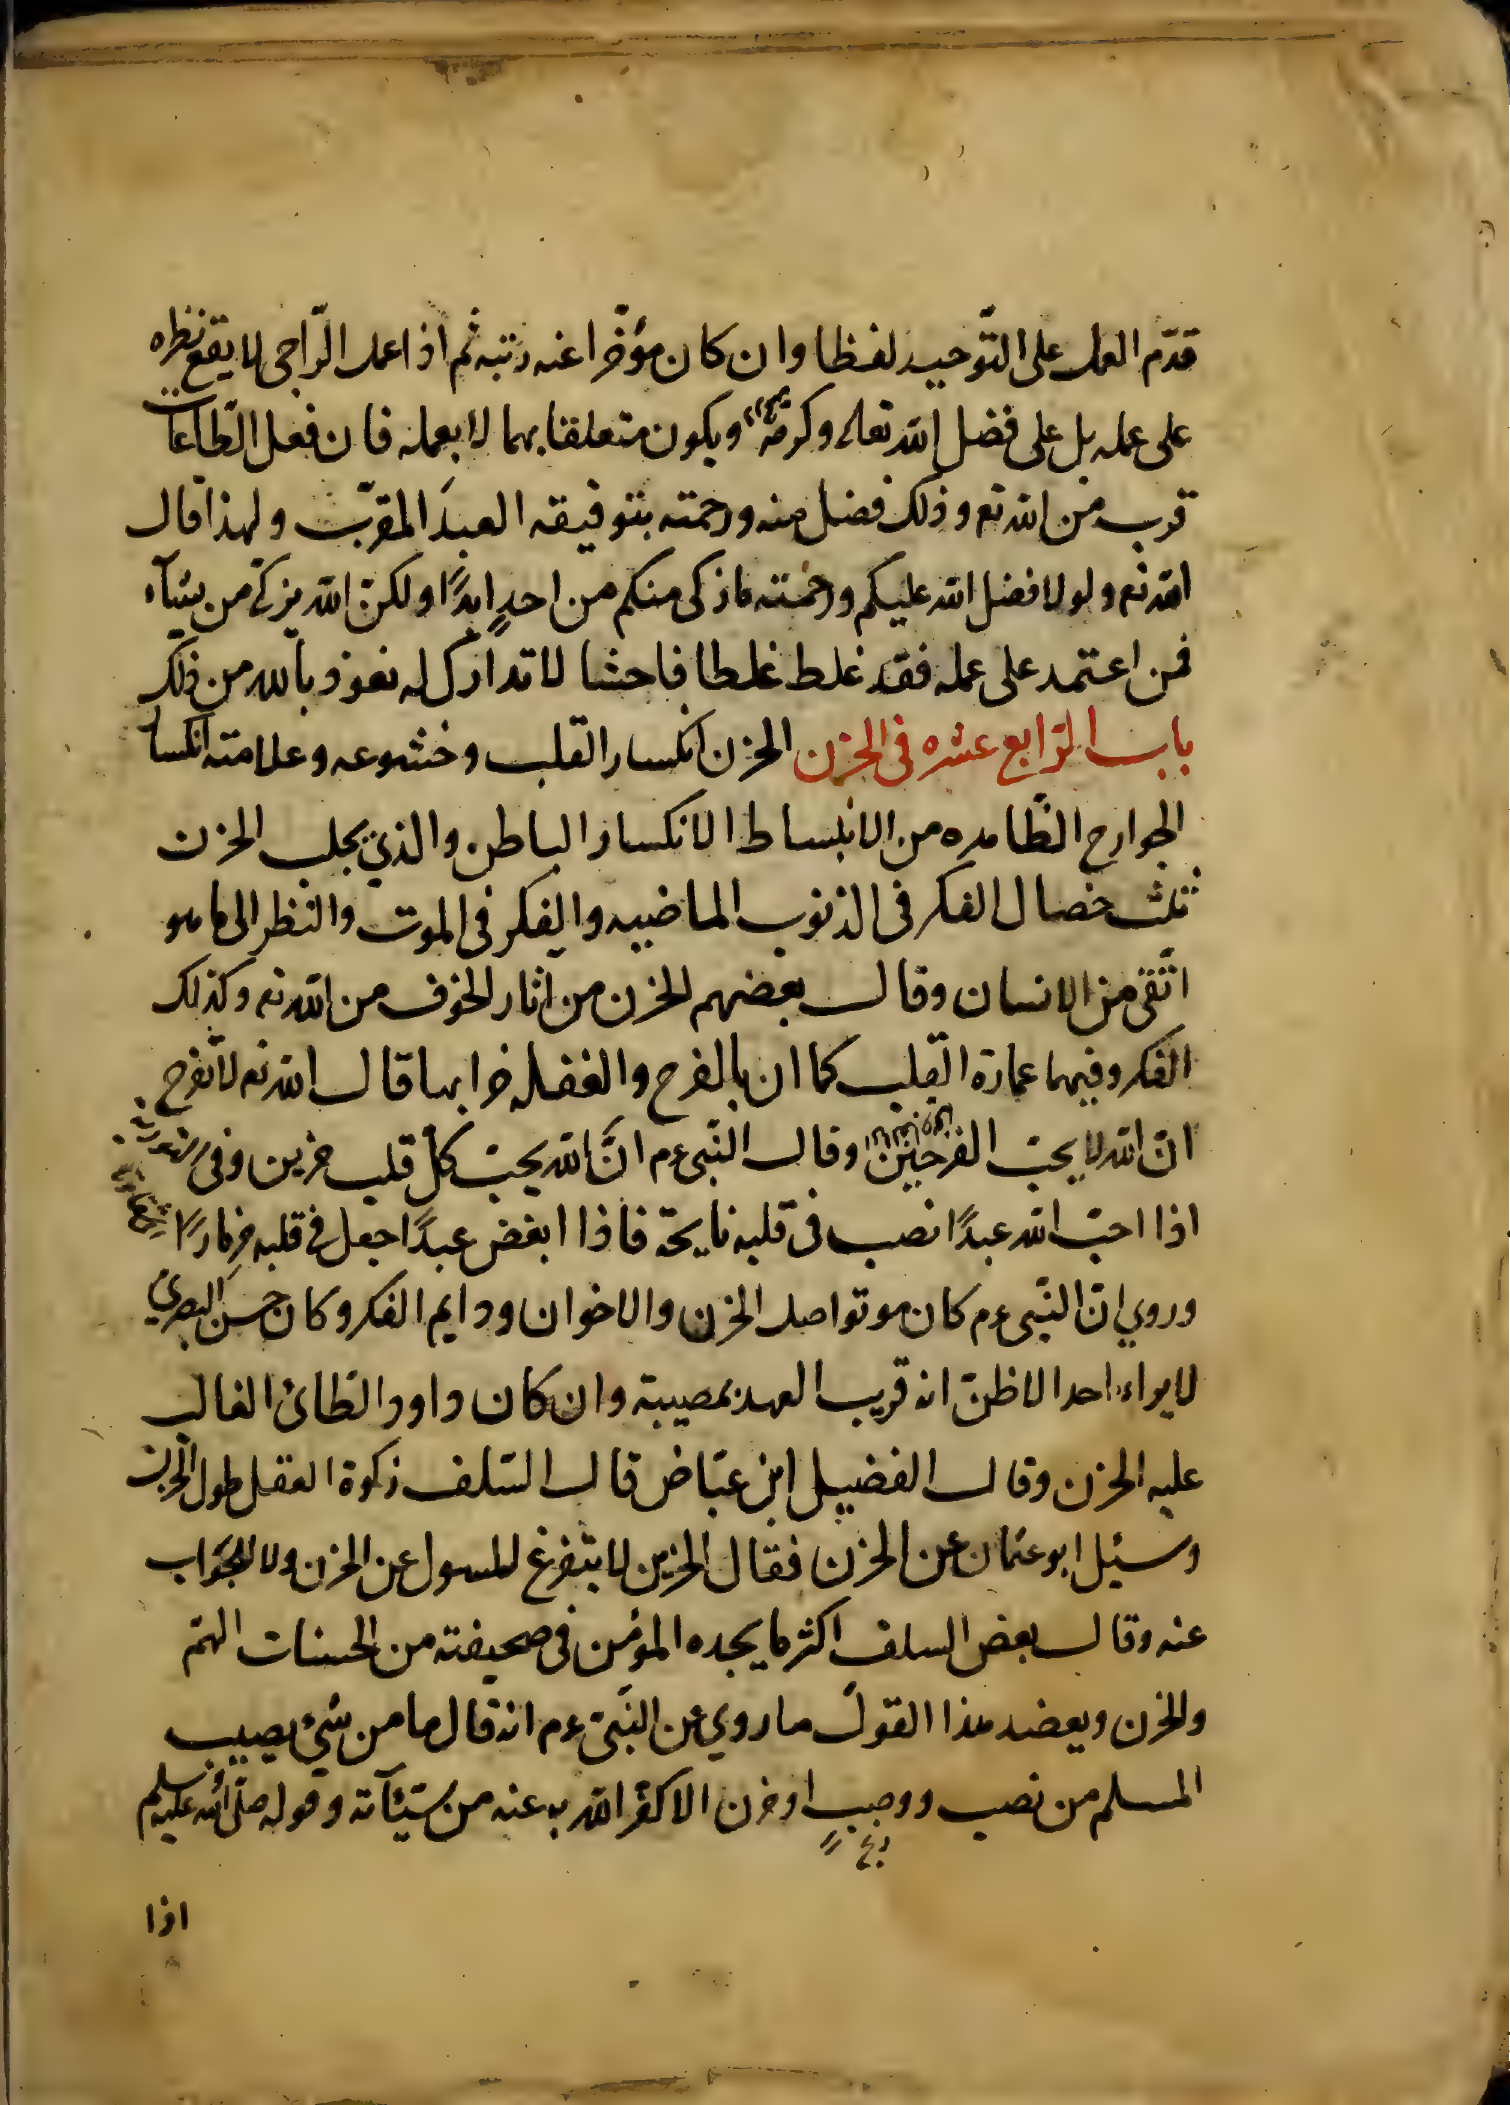 قدّم العمل على التّوحيد لفظا وان كان مؤخّرا عنه رتبه ثم اذا عمل الرّاجى لا يقع نظره
على عمله بل على فضل الله تعالى وكرمه ويكون متعلقا بهما لا بعمله فان فعل الطّاعات
قرب من الله تع وذلك فضل منه ورحمته بتوفيقه العبد المقرّب ولهذا قال
الله تع ولولا فضل الله عليكم ورحمته ما زكى منكم من احدٍ ابدًا ولكنّ الله يزكّى من يشآء
فمن اعتمد على عمله فقد غلط غلطا فاحشا لا تدارك له نعوذ بالله من ذلك
باب الرّابع عشره فى الحزن الحزن انكسار القلب وخشوعه وعلامته انكسا
الجوارح الظّاهره من الانبساط الانكسار الباطن والذى يجلب الحزن
ثلث خصال الفكر فى الذنوب الماضيه والفكر فى الموت والنظر الى ما هو
اتّقى من الانسان وقال بعضهم الحزن من اثار الخوف من الله تع وكذلك
الفكر وفيهما عمارة القلب كما ان بالفرح والغفله خرابها قال الله تع لا تفرح
انّ الله لا يحبّ الفرحين وقال النّبى ءم انّ الله يحبّ كلّ قلب حزين وفى
اذا احبّ الله عبدًا نصب فى قلبه نايحة فاذا ابغض عبدًا جعل فى قلبه مزمارًا
وروي انّ النّبى ءم كان هو تواصل الحزن والاخوان ودايم الفكر وكان حسن البصري
لا يراه احد الا ظنّ انه قريب العهد بمصيبة وان كان داود الطائى الغالب
عليه الحزن وقال الفضيل ابن عيّاض قال السّلف زكوة العقل طول الحزن
وسئيل ابو عثمان عن الحزن فقال الحزين لا يتفرغ للسول عن الحزن ولا للجواب
عنه وقال بعض السلف اكثر ما يجده المؤمن فى صحيفته من الحسنات الهمّ
والحزن ويعضد هذا القول ما روي عن النّبىّ ءم انه قال ما من شئ يصيب
المسلم من نصب ووصبٍ او حزن الا كفّر الله به عنه من سيّئآته وقوله صلّى الله عليه وسلم
اذا